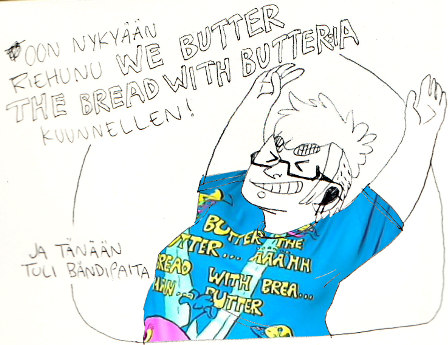 OON NYKYÄÄN
RIEHUNU WE BUTTER
THE BREAD WITH BUTTERIA
KUUNNELLEN!
JA TÄNÄÄN
TULI BÄNDIPAITA
BUTTER THE
BUTTER... ÄÄÄHH
BREAD WITH BREA...
BUTTER